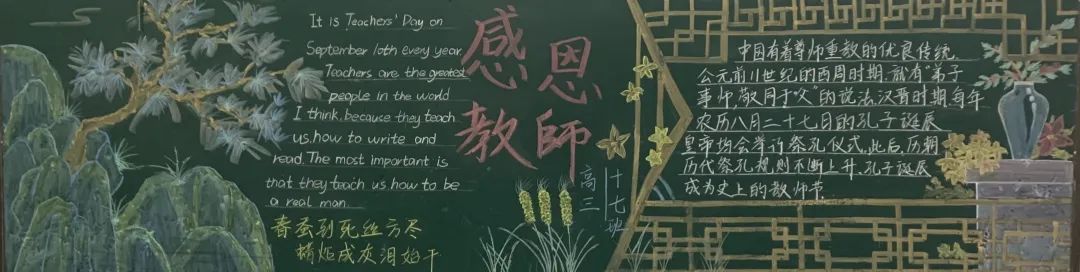 It is Teachers' Day on
September 10th every year.
Teachers are the greatest
people in the world
I think, because they teach
us, how to write and
read. The most important is
that they teach us how to be
a real man.
春蚕到死丝方尽
蜡炬成灰泪始干
感恩
教師
高三
十七班
中国有着尊师重教的优良传统,
公元前11世纪的西周时期,就有“弟子
事师,敬同于“父”的说法,汉晋时期,每年
农历八月二十七日的孔子诞辰
皇帝均会举行祭孔仪式,此后,历朝
历代祭孔规则不断上升,孔子诞辰
成为史上的教师节